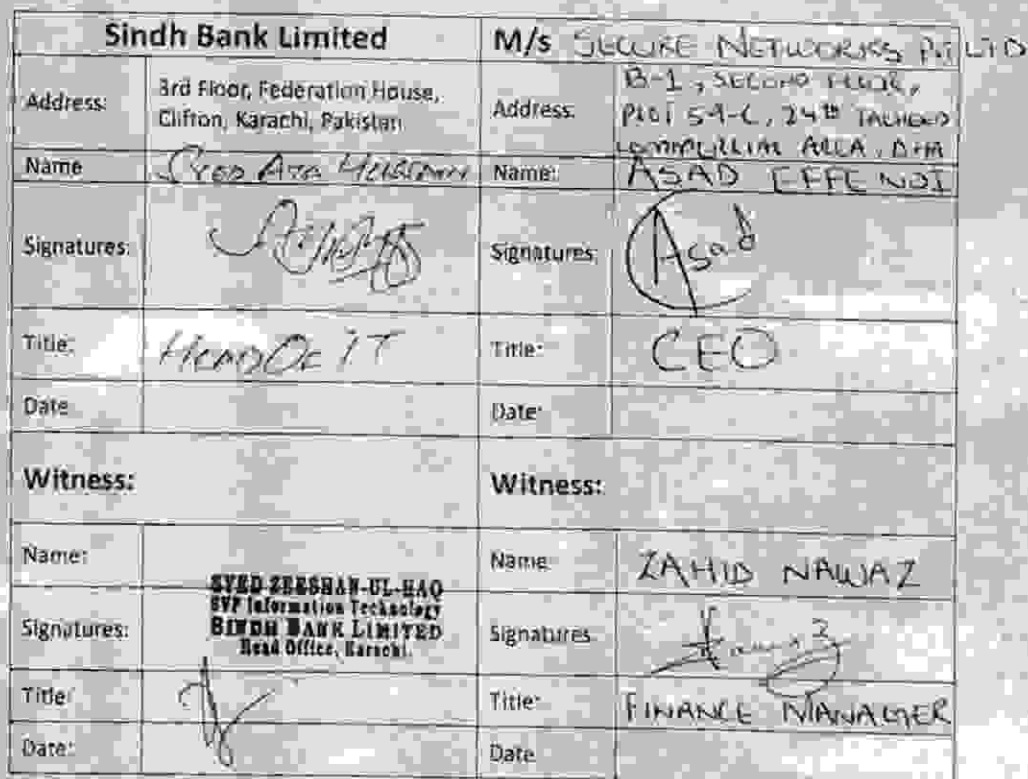 Sindh Bank Limited
M/s SECURE NETWORKS PVT LTD
Address:
3rd Floor, Federation House,
Clifton, Karachi, Pakistan
Address:
B-1, SECOND FLOOR,
PLOT 59-C, 24th
COMMERCIAL AREA, DHA
Name
SYED ATA HUSSAIN
Name:
ASAD EFFENDI
Signatures:
Signatures:
Asad
Title:
HEAD OF IT
Title:
CEO
Date
Date:
Witness:
Witness:
Name:
Name
ZAHID NAWAZ
SYED ZEESHAN-UL-HAQ
SVP Information Technology
SINDH BANK LIMITED
Head Office, Karachi.
Signatures:
Signatures
Title
Title:
FINANCE MANAGER
Date:
Date